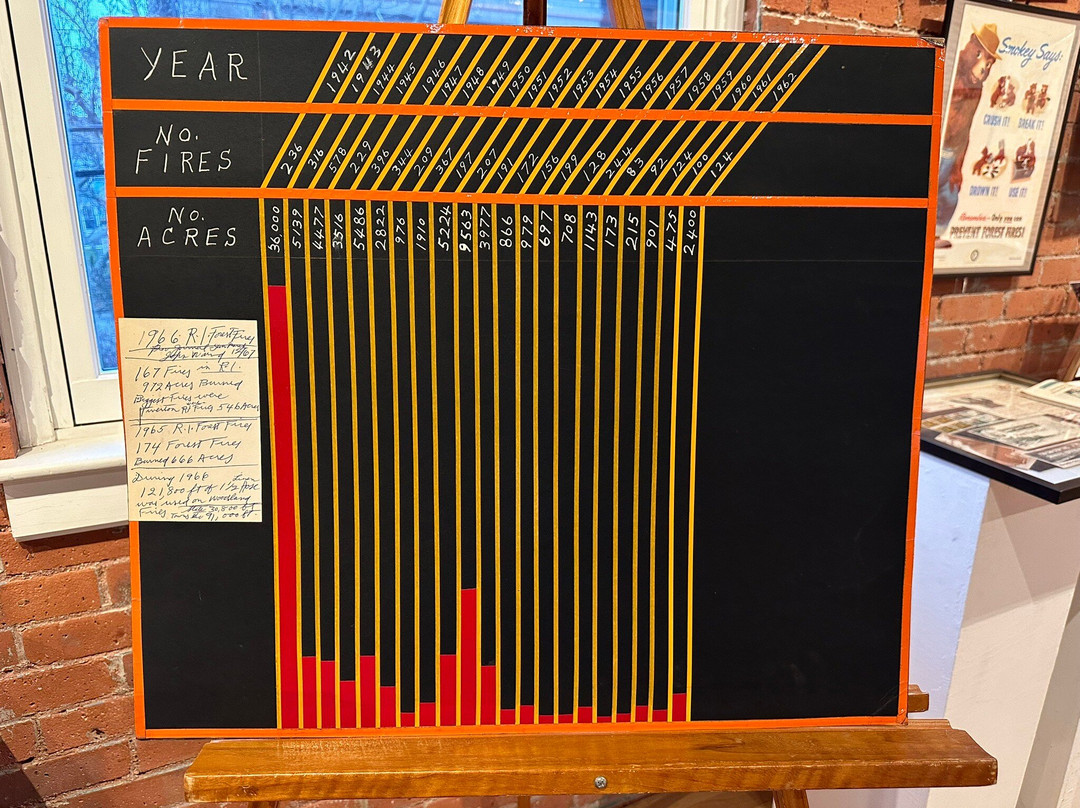 YEAR 1942 1943 1944 1945 1946 1947 1948 1949 1950 1951 1952 1953 1954 1955 1956 1957 1958 1959 1960 1961 1962
NO.
FIRES 236 316 578 229 396 344 209 367 197 207 191 172 156 199 128 244 83 92 124 100 124
NO.
ACRES 36,000 5139 4477 3516 5486 2822 976 1910 5224 9563 3977 866 979 697 708 1143 173 215 901 475 2400
1966 R.I. Forest Fires
167 Fires in R.I.
972 Acres Burned
Biggest Fires were
Tiverton Fires 546 Acres
1965 R.I. Forest Fires
174 Forest Fires
Burned 666 Acres
During 1966
121,800 ft of 1 1/2 Hose
was used on woodland
Fires
Smokey Says:
CRUSH IT! BREAK IT!
DROWN IT! USE IT!
Remember - Only you can
PREVENT FOREST FIRES!